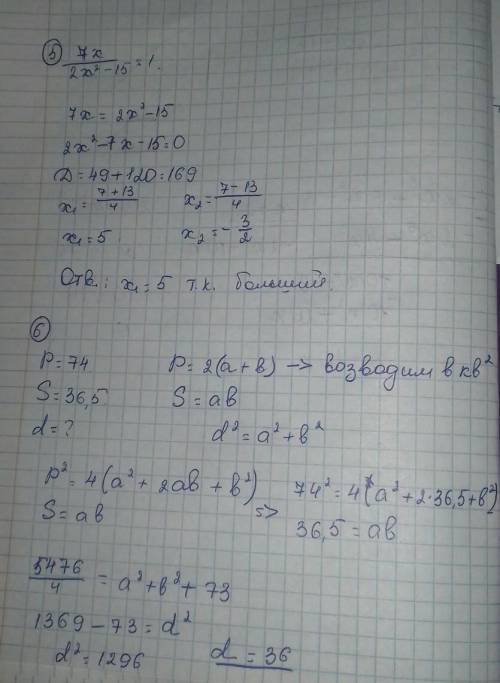 ⑤ 7x / 2x² - 15 = 1.
7x = 2x² - 15
2x² - 7x - 15 = 0
D = 49 + 120 = 169
x₁ = 7 + 13 / 4   x₂ = 7 - 13 / 4
x₁ = 5   x₂ = - 3/2
Отв.: x₁ = 5 т.к. больший.
⑥
P = 74   P = 2(a + в) –> возводим в кв²
S = 36,5   S = aв
d = ?   d² = a² + в²
P² = 4(a² + 2aв + в²)   74² = 4(a² + 2·36,5 + в²)
S = aв   =>   36,5 = aв
5476 / 4 = a² + в² + 73
1369 - 73 = d²
d² = 1296   d = 36